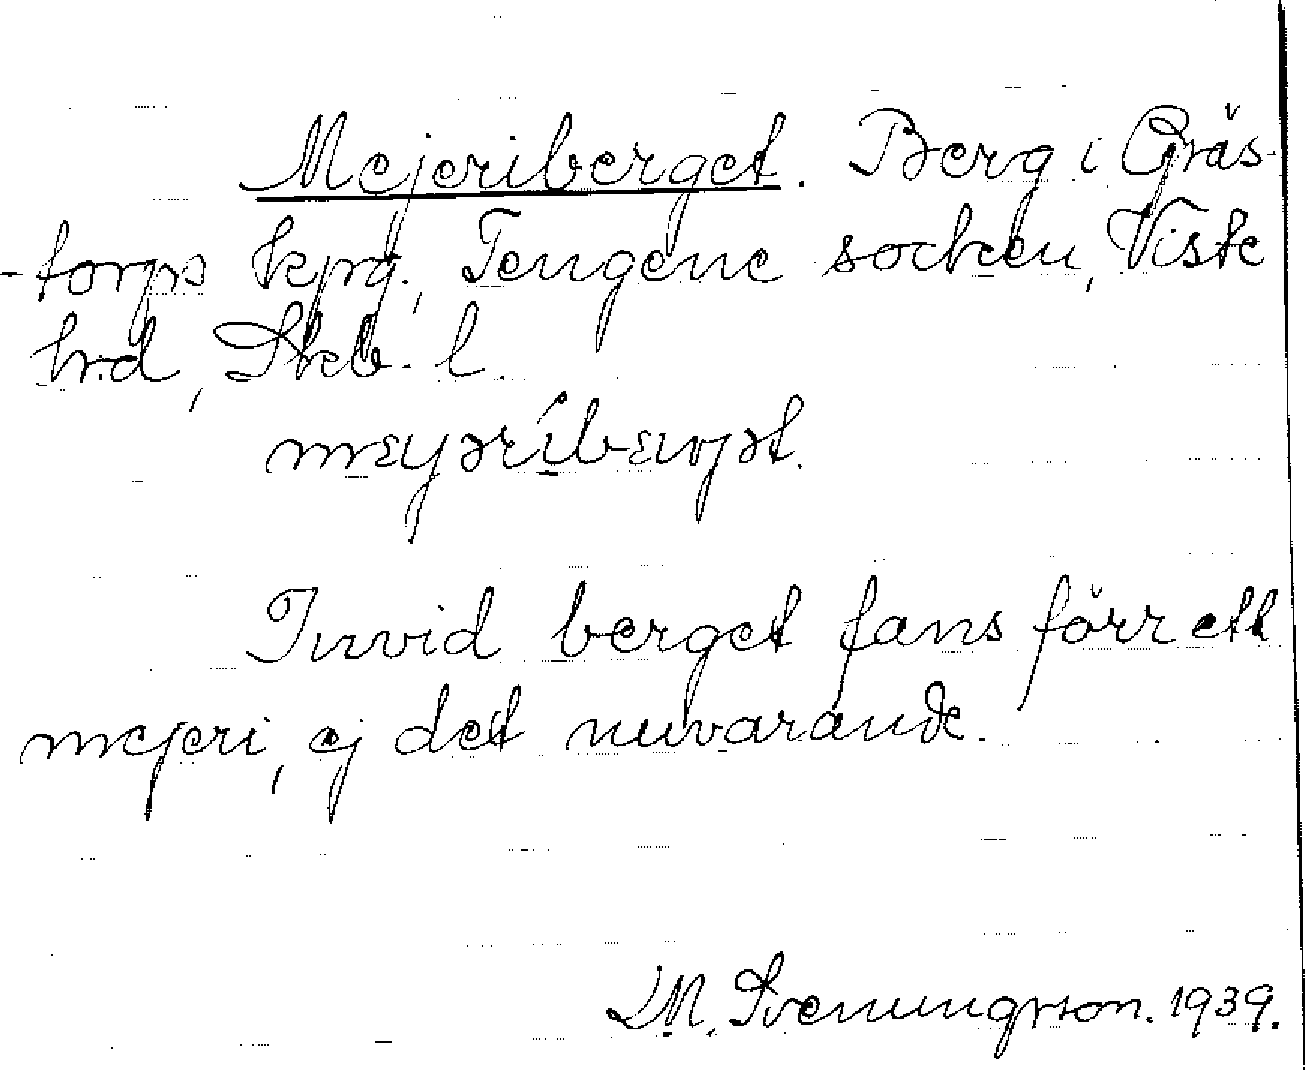 Mejeriberget. Berg i Gräs-
-torps kpg., Tengene socken, Viste
hrd, Skab. l.
mɛyəríbærjət.
Invid berget fans förr ett
mejeri, ej det nuvarande.
LM. Svenungsson. 1939.